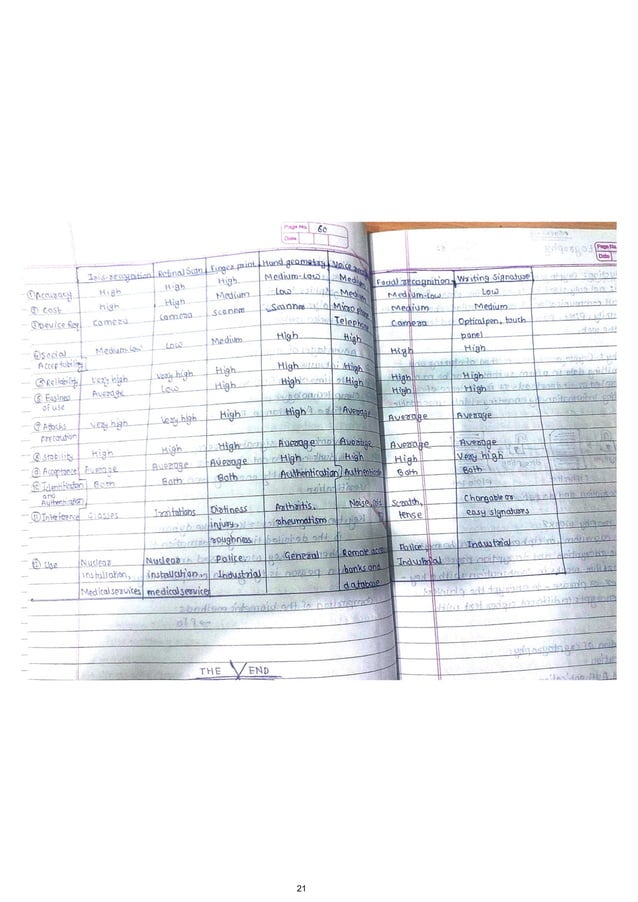 Page No. 60
Date
Page No.
Date
Iris-recognition Retinal Scan Finger print Hand geometry Voice Facial recognition Writing Signature
① Accuracy High High High Medium-Low Medium Medium-Low Low
② Cost High High Medium Low Medium Medium Medium
③ Device Req. camera camera scanner Scanner Micro phone Camera Optical pen, touch
Telephone panel
④ Social Medium-Low Low Medium High High High High
Acceptability
⑤ Reliability Very high Very high High High High High High
⑥ Easiness Average Low High High High High High
of use
⑦ Attacks Very high Very high High High Average Average Average
precaution
⑧ Stability High High High Average Average Average Average
⑨ Acceptance Average Average Average High High High Very high
⑩ Identification Both Both Both Authentication Both Both
and
Authentication
⑪ Interference Glasses Irritations Dirtiness Arthritis, Noise, Changable or
injury, rheumatism tense easy signatures
roughness
⑫ Use Nuclear Nuclear Police, General Remote access Police, Industrial
installation, installation, Industrial banks and Industrial
Medical services medical services database
THE END
21